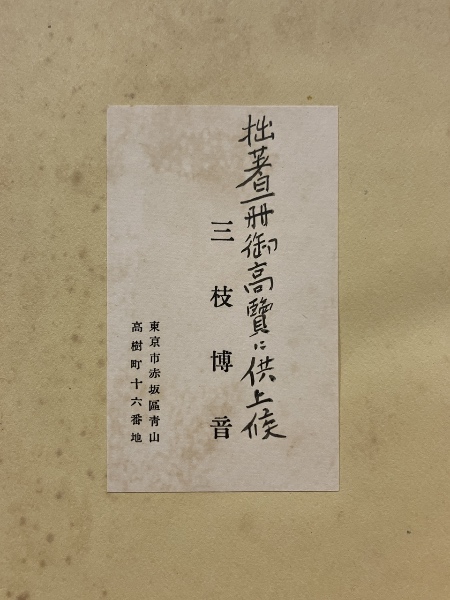 拙著一冊御高覽に供上候
三枝博音
東京市赤坂區靑山
高樹町十六番地